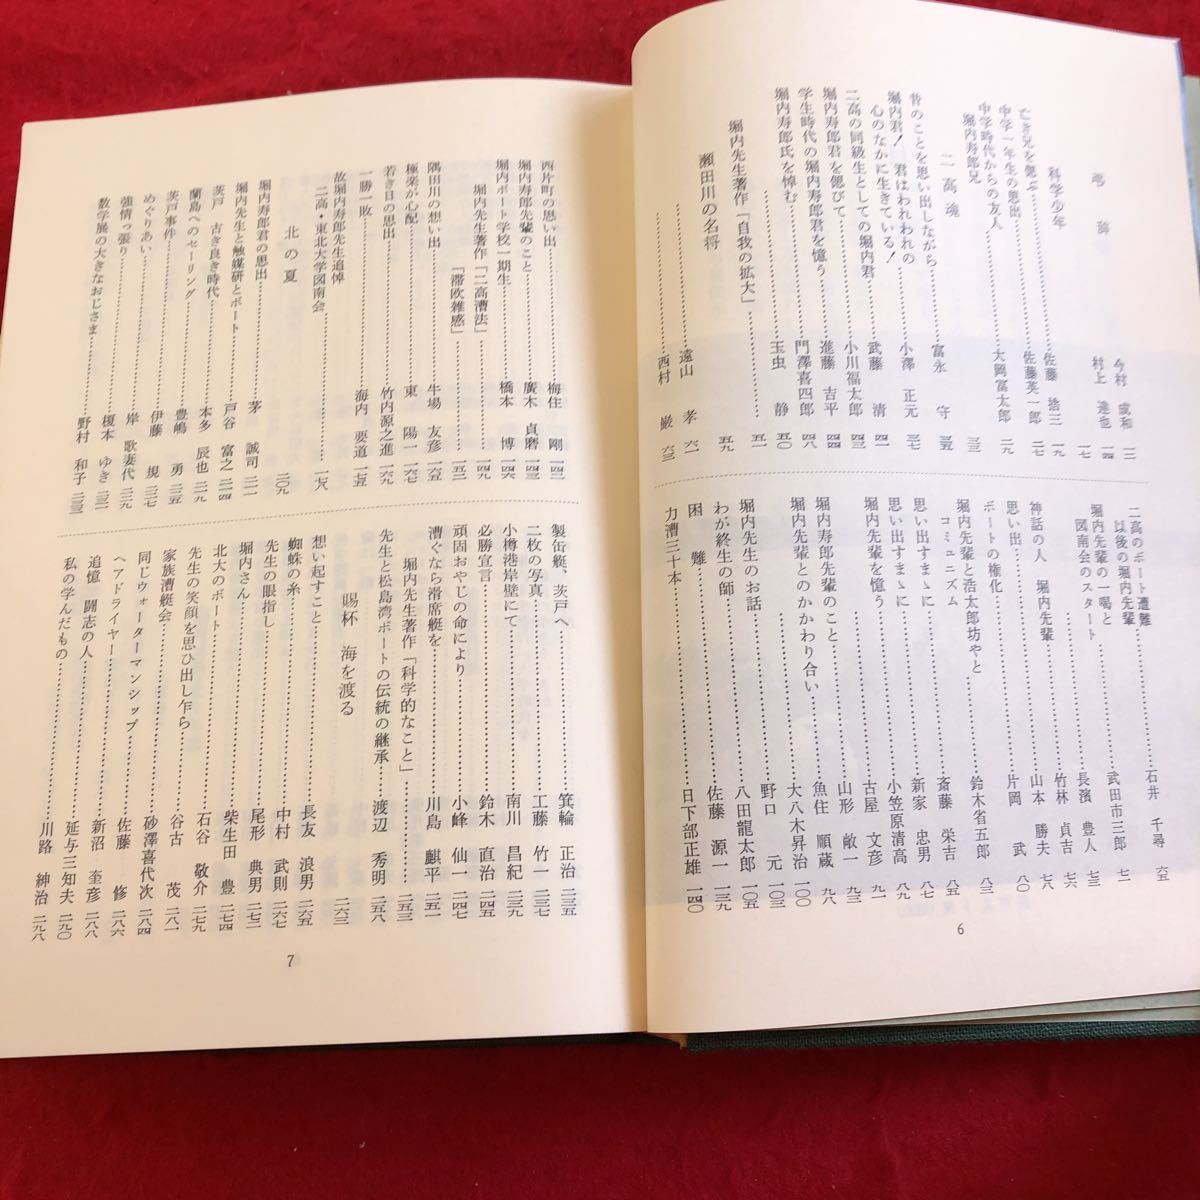 弔辞
今村 成和 一三
村上 達也 一四
科学少年 一七
亡き兄を偲ぶ 佐藤 捨三 一九
中学一年生の思出 佐藤英一郎 二七
中学時代からの友人
堀内寿郎兄 大岡富太郎 二九
二高魂 三三
昔のことを思い出しながら 富永 守 三五
堀内君! 君はわれわれの
心のなかに生きている! 小澤 正元 三七
二高の同級生としての堀内君 武藤 清 四一
堀内寿郎君を偲びて 小川福太郎 四三
学生時代の堀内寿郎君を憶う 進藤 吉平 四四
堀内寿郎氏を悼む 門澤喜四郎 四八
玉虫 静 五〇
堀内先生著作『自我の拡大』 五一
瀬田川の名将 五九
遠山 孝 六一
西村 巌 六三
二高のボート遭難
以後の堀内先輩 石井 千尋 六五
堀内先輩の一喝と
図南会のスタート 武田市三郎 七一
長濱 豊人 七三
竹林 貞吉 七六
神話の人 堀内先輩 山本 勝夫 七八
思い出 片岡 武 八〇
ボートの権化 鈴木省五郎 八三
堀内先輩と浩太郎坊やと
コミュニズム 斎藤 栄吉 八五
思い出すまゝに 新家 忠男 八七
思い出すまゝに 小笠原清高 八九
堀内先輩を憶う 古屋 文彦 九一
山形 敞一 九三
堀内寿郎先輩のこと 魚住 順蔵 九八
堀内先輩とのかかわり合い 大八木昇治 一〇〇
野口 元 一〇三
堀内先生のお話 八田龍太郎 一〇五
わが終生の師 佐藤 源一 一二九
困難 日下部正雄 一四〇
力漕三十本
6
西片町の思い出 梅住 剛 一四二
堀内寿郎先輩のこと 廣木 貞磨 一四三
堀内ボート学校一期生 橋本 博 一四六
堀内先生著作『二高漕法』 一四九
『滞欧雑感』 一五二
隅田川の想い出 牛場 友彦 一六五
極楽が心配 東 陽一 一六七
若き日の思出 竹内源之進 一六九
一勝一敗 海内 要道 一七五
故堀内寿郎先生追悼
二高・東北大学図南会 一七八
北の夏 二〇九
堀内寿郎君の思出 茅 誠司 二一一
堀内先生と触媒研とボート 戸谷 富之 二一四
茨戸 古き良き時代 本多 辰也 二一九
蘭島へのセーリング 豊嶋 勇 二二五
茨戸事件 伊藤 規 二二七
めぐりあい 岸 歌妻代 二二九
強情っ張り 榎本 ゆき 二三一
数学展の大きなおじさま 野村 和子 二三三
製缶艇、茨戸へ 箕輪 正治 二三五
二枚の写真 工藤 竹一 二三七
小樽港岸壁にて 南川 昌紀 二三九
必勝宣言 鈴木 直治 二四五
頑固おやじの命により 小峰 仙一 二四七
漕ぐなら滑席艇を 川島 麒平 二五一
堀内先生著作『科学的なこと』 二五三
先生と松島湾ボートの伝統の継承 渡辺 秀明 二五八
賜杯 海を渡る 二六三
想い起すこと 長友 浪男 二六五
蜘蛛の糸 中村 武則 二六七
先生の眼指し 尾形 典男 二七二
堀内さん 柴生田 豊 二七四
北大のボート 石谷 敬介 二七九
先生の笑顔を思ひ出し乍ら 谷古 茂 二八一
家族漕艇会 砂澤喜代次 二八四
同じウォーターマンシップ 佐藤 修 二八六
ヘアドライヤー 新沼 奎彦 二八八
追憶 闘志の人 延与三知夫 二九〇
私の学んだもの 川路 紳治 二九八
7